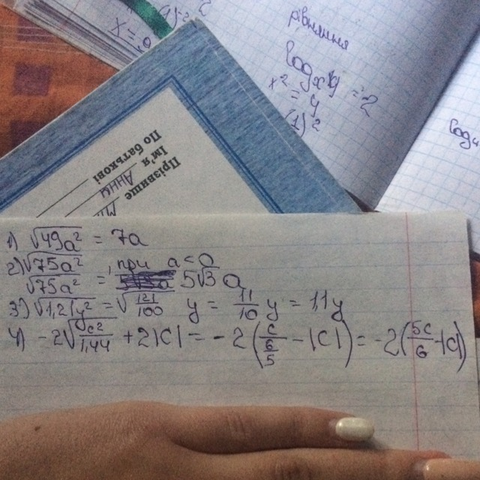 рівняння
log_x 4 = 2
x² = 4
Прізвище
Ім'я
Анни
По батькові
1) √49a² = 7a
2) √75a² при a<0
√75a² = 5√3 a
3) √1,21y² = √121/100 y = 11/10 y = 1,1y
4) = 2√c²/1,44 + 2|c| = - 2(c/(6/5) - |c|) = -2(5c/6 - |c|)